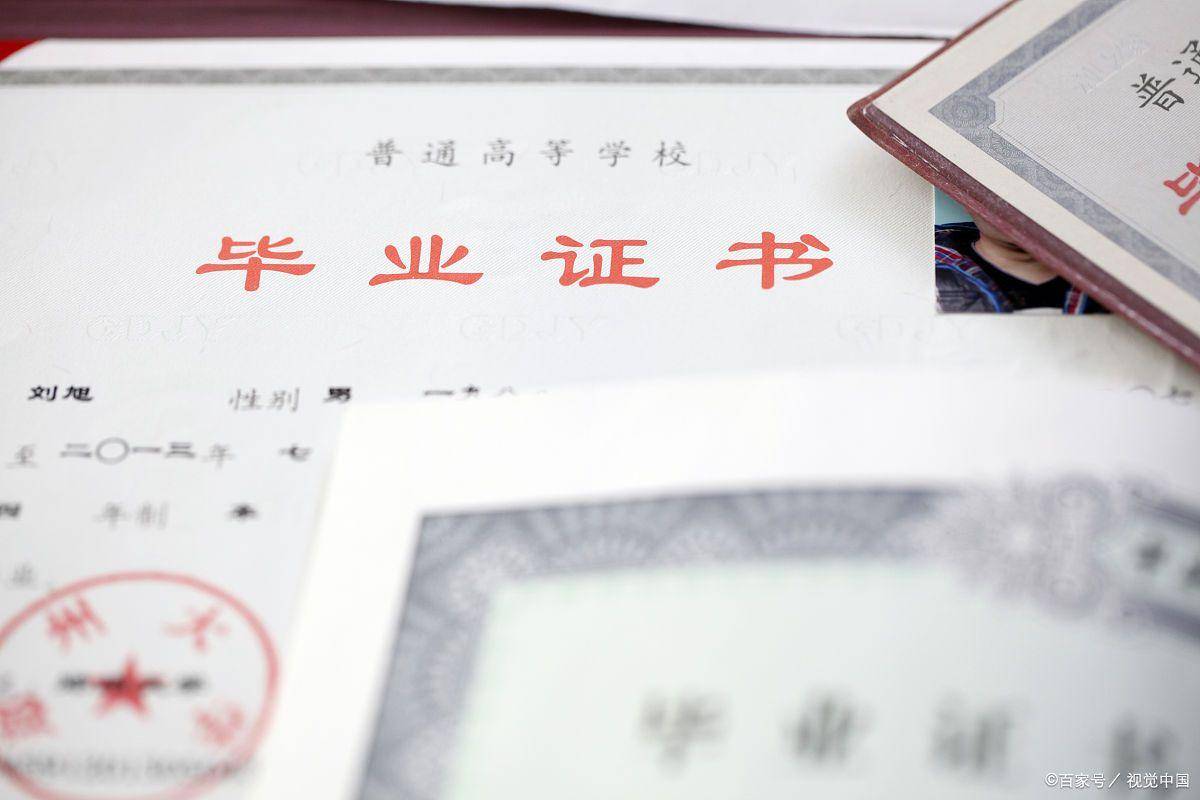 普通高等学校
普通
毕业证书
毕
刘旭 性别 男 一九八
至 二〇一三年 七
四 年制 本
州大
毕业证
©百家号／视觉中国